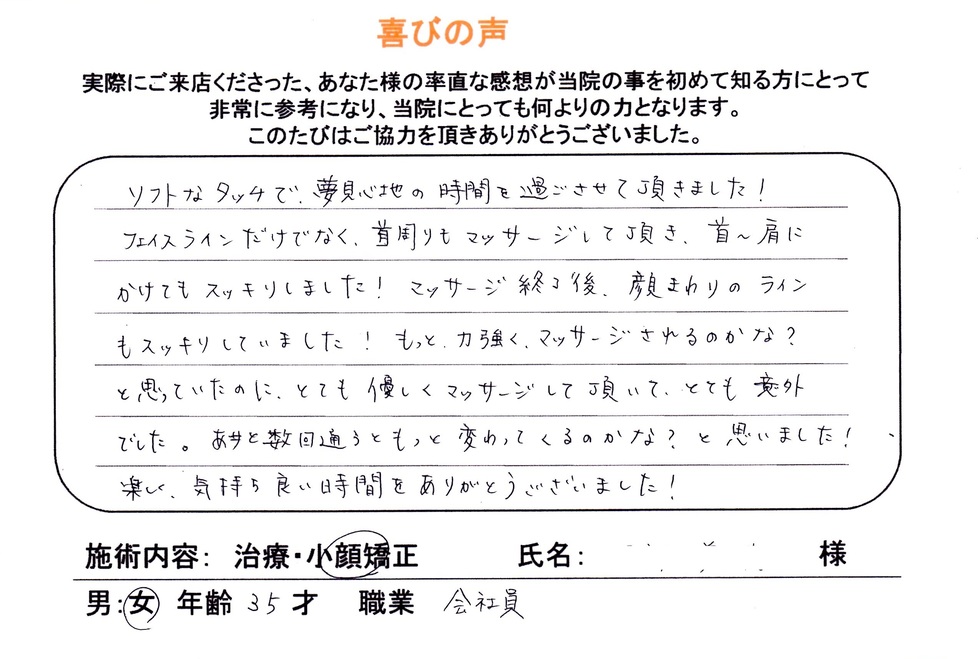 喜びの声
実際にご来店くださった、あなた様の率直な感想が当院の事を初めて知る方にとって
非常に参考になり、当院にとっても何よりの力となります。
このたびはご協力を頂きありがとうございました。
ソフトなタッチで、夢見心地の時間を過ごさせて頂きました!
フェイスラインだけでなく、首周りもマッサージして頂き、首〜肩に
かけてもスッキリしました! マッサージ終了後、顔まわりのライン
もスッキリしていました! もっと、力強く、マッサージされるのかな?
と思っていたのに、とても優しくマッサージして頂いて、とても意外
でした。あと数回通うともっと変わってくるのかな?と思いました!
楽しく、気持ち良い時間をありがとうございました!
施術内容: 治療・小顔矯正 氏名: 様
男:女 年齢 35 才 職業 会社員